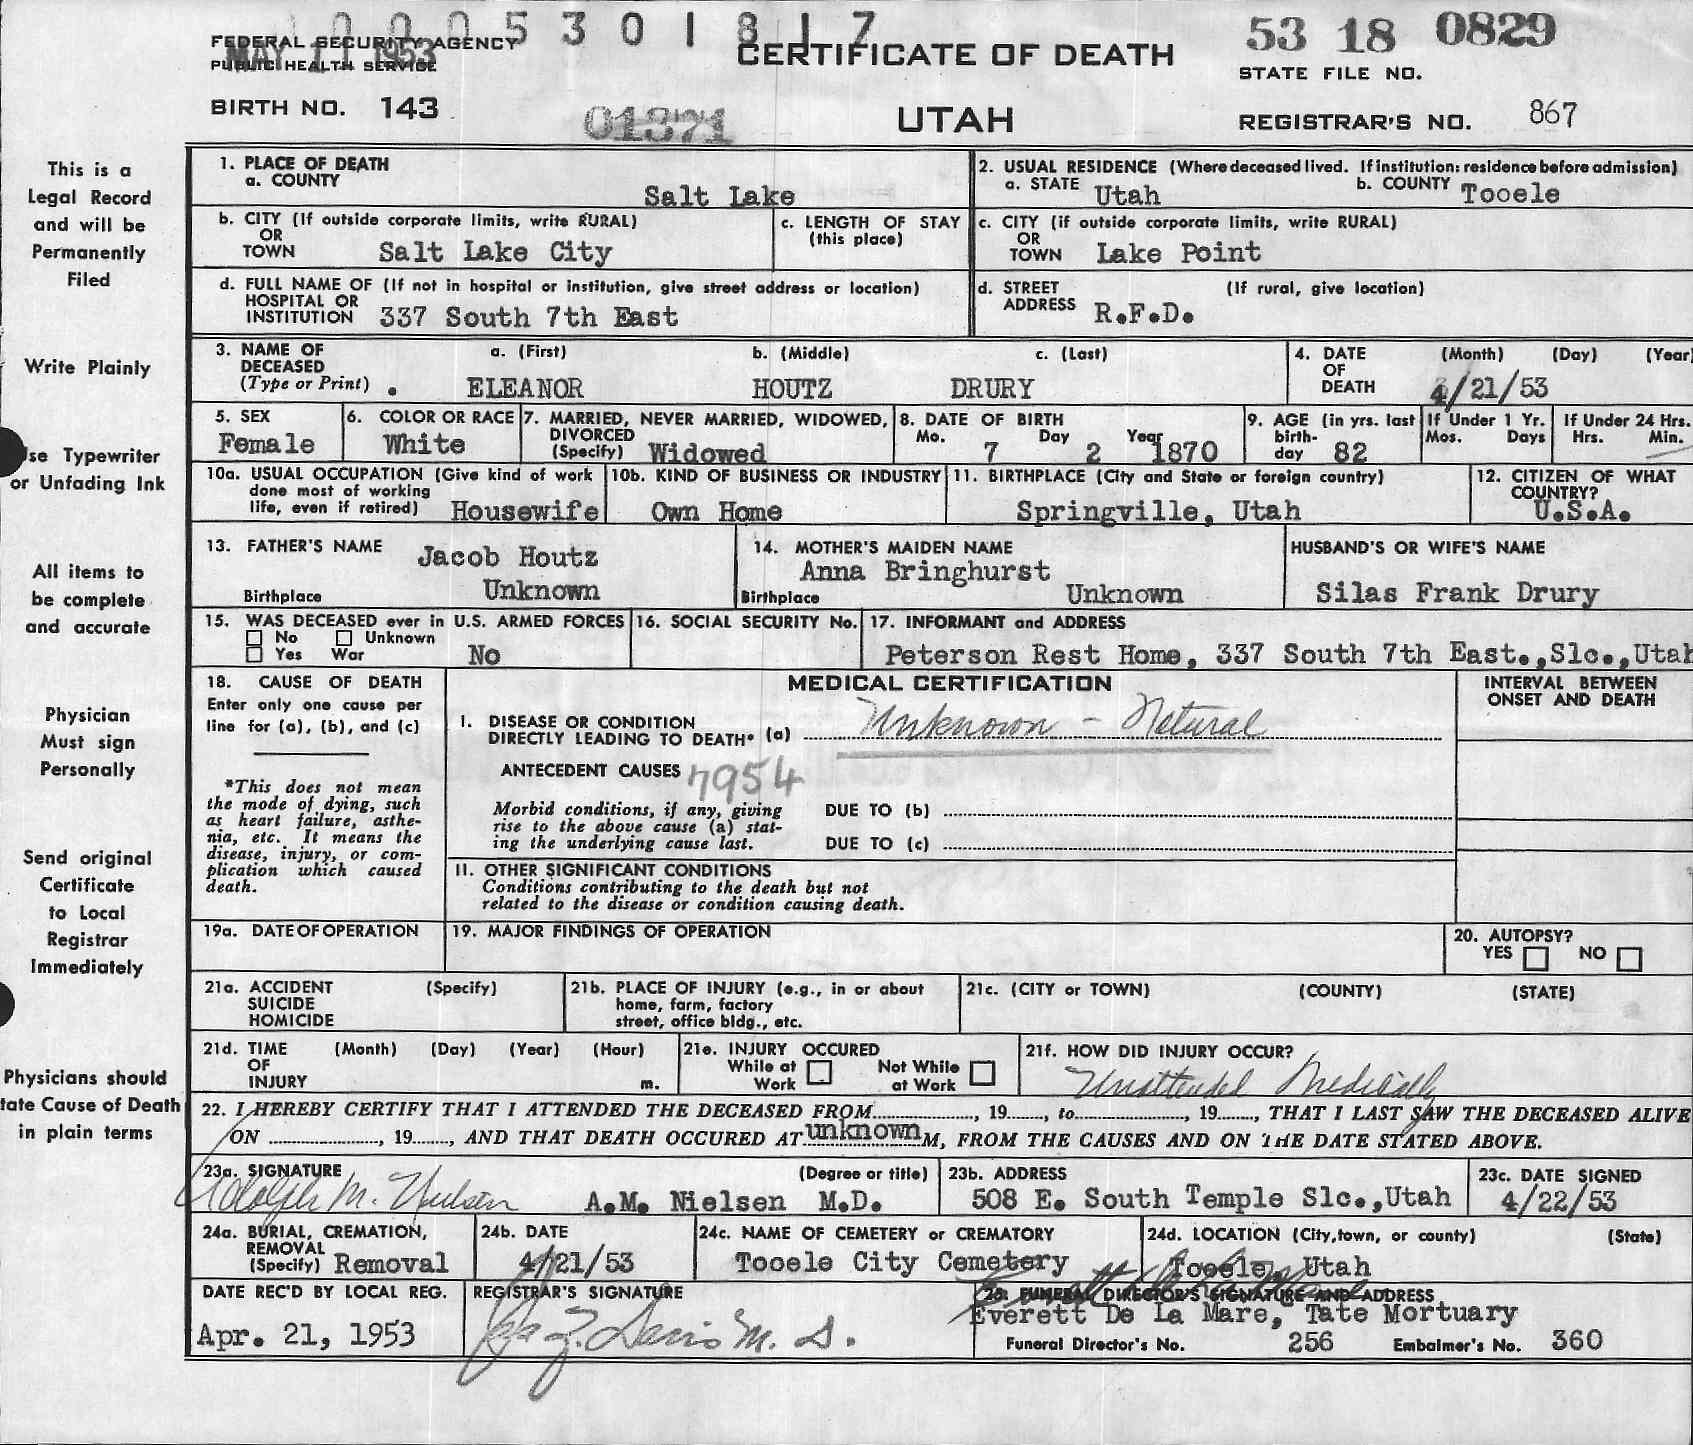 1 0 0 0 5 3 0 1 8 1 7
FEDERAL SECURITY AGENCY
PUBLIC HEALTH SERVICE
MAY 1953
CERTIFICATE OF DEATH
53 18 0829
STATE FILE NO.
BIRTH NO. 143
01371
UTAH
REGISTRAR'S NO. 867
This is a
Legal Record
and will be
Permanently
Filed
Write Plainly
se Typewriter
or Unfading Ink
All items to
be complete
and accurate
Physician
Must sign
Personally
Send original
Certificate
to Local
Registrar
Immediately
Physicians should
tate Cause of Death
in plain terms
1. PLACE OF DEATH
a. COUNTY Salt Lake
2. USUAL RESIDENCE (Where deceased lived. If institution: residence before admission)
a. STATE Utah b. COUNTY Tooele
b. CITY (If outside corporate limits, write RURAL)
OR
TOWN Salt Lake City
c. LENGTH OF STAY
(this place)
c. CITY (if outside corporate limits, write RURAL)
OR
TOWN Lake Point
d. FULL NAME OF (If not in hospital or institution, give street address or location)
HOSPITAL OR
INSTITUTION 337 South 7th East
d. STREET (If rural, give location)
ADDRESS R.F.D.
3. NAME OF a. (First) b. (Middle) c. (Last)
DECEASED
(Type or Print) . ELEANOR HOUTZ DRURY
4. DATE (Month) (Day) (Year)
OF
DEATH 4/21/53
5. SEX
Female
6. COLOR OR RACE
White
7. MARRIED, NEVER MARRIED, WIDOWED,
DIVORCED
(Specify) Widowed
8. DATE OF BIRTH
Mo. Day Year
7 2 1870
9. AGE (in yrs. last
birth-
day 82
If Under 1 Yr.
Mos. Days
If Under 24 Hrs.
Hrs. Min.
10a. USUAL OCCUPATION (Give kind of work
done most of working
life, even if retired) Housewife
10b. KIND OF BUSINESS OR INDUSTRY
Own Home
11. BIRTHPLACE (City and State or foreign country)
Springville, Utah
12. CITIZEN OF WHAT
COUNTRY?
U.S.A.
13. FATHER'S NAME Jacob Houtz
Birthplace Unknown
14. MOTHER'S MAIDEN NAME
Anna Bringhurst
Birthplace Unknown
HUSBAND'S OR WIFE'S NAME
Silas Frank Drury
15. WAS DECEASED ever in U.S. ARMED FORCES
No Unknown
Yes War No
16. SOCIAL SECURITY No.
17. INFORMANT and ADDRESS
Peterson Rest Home, 337 South 7th East.,Slc.,Utah
18. CAUSE OF DEATH
Enter only one cause per
line for (a), (b), and (c)
*This does not mean
the mode of dying, such
as heart failure, asthe-
nia, etc. It means the
disease, injury, or com-
plication which caused
death.
MEDICAL CERTIFICATION
INTERVAL BETWEEN
ONSET AND DEATH
I. DISEASE OR CONDITION
DIRECTLY LEADING TO DEATH* (a) Unknown - Natural
ANTECEDENT CAUSES 7954
Morbid conditions, if any, giving
rise to the above cause (a) stat-
ing the underlying cause last.
DUE TO (b)
DUE TO (c)
II. OTHER SIGNIFICANT CONDITIONS
Conditions contributing to the death but not
related to the disease or condition causing death.
19a. DATE OF OPERATION
19. MAJOR FINDINGS OF OPERATION
20. AUTOPSY?
YES NO
21a. ACCIDENT (Specify)
SUICIDE
HOMICIDE
21b. PLACE OF INJURY (e.g., in or about
home, farm, factory
street, office bldg., etc.
21c. (CITY or TOWN) (COUNTY) (STATE)
21d. TIME (Month) (Day) (Year) (Hour)
OF
INJURY m.
21e. INJURY OCCURED
While at Not While
Work at Work
21f. HOW DID INJURY OCCUR?
Unattended Medically
22. I HEREBY CERTIFY THAT I ATTENDED THE DECEASED FROM..............., 19......, to..............., 19......, THAT I LAST SAW THE DECEASED ALIVE
ON ..............., 19......, AND THAT DEATH OCCURED AT unknown M, FROM THE CAUSES AND ON THE DATE STATED ABOVE.
23a. SIGNATURE (Degree or title)
Adolph M. Nielsen A.M. Nielsen M.D.
23b. ADDRESS
508 E. South Temple Slc.,Utah
23c. DATE SIGNED
4/22/53
24a. BURIAL, CREMATION,
REMOVAL
(Specify) Removal
24b. DATE
4/21/53
24c. NAME OF CEMETERY or CREMATORY
Tooele City Cemetery
24d. LOCATION (City, town, or county) (State)
Tooele, Utah
DATE REC'D BY LOCAL REG.
Apr. 21, 1953
REGISTRAR'S SIGNATURE
Davis M. D.
25. FUNERAL DIRECTOR'S SIGNATURE AND ADDRESS
Everett De La Mare, Tate Mortuary
Funeral Director's No. 256 Embalmer's No. 360